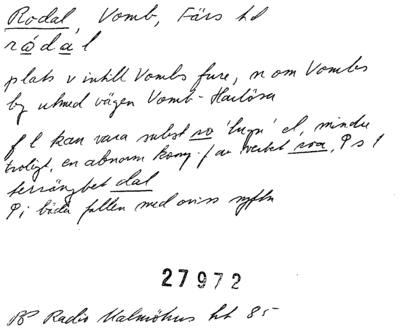 Rodal, Vomb, Färs hd
rådål
plats v intill Vombs fure, n om Vombs
by utmed vägen Vomb - Harlösa
f l kan vara subst ro 'lugn' el, mindre
troligt, en abnorm komp. f av verbet roa, ? s l
terrängbet dal
? i båda fallen med oviss syftn
27972
PP Radio Malmöhus ht 85